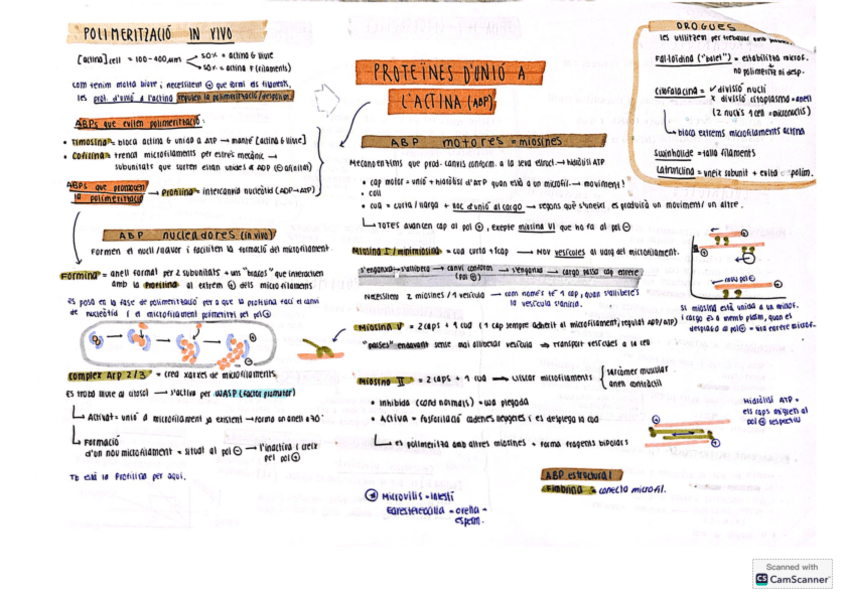 POLIMERITZACIÓ IN VIVO
[actina]cell = 100-400µm
50% = actina G lliure
50% = actina F (filaments)
com tenim molta lliure i necessitem ⊕ que formi els filaments,
les prot. d'unió a l'actina regulen la polimerització/despolim.
ABPs que eviten polimerització:
• Timosina = bloca actina G unida a ATP → manté [actina G lliure]
• Cofilina = trenca microfilaments per estrès mecànic →
subunitats que surten estan unides a ADP (⊖ afinitat)
ABPs que promouen
la polimerització → Profilina = intercanvia nucleòtid (ADP→ATP)
ABP nucleadores (in vivo)
Formen el nucli/llavor i faciliten la formació del microfilament.
Formina = anell format per 2 subunitats + uns "braços" que interactuen
amb la profilina al extrem ⊕ dels micro filaments
És posa en la fase de polimerització per a que la profilina faci el canvi
de nucleòtid i el microfilament polimeritzi pel pol ⊕
Complex Arp 2/3 = crea xarxes de microfilaments
Es troba lliure al citosol → s'activa per WASP (factor promotor)
↳ Activat = unió a microfilament ja existent → forma un anell a 70°
↳ Formació
d'un nou microfilament = situat al pol ⊖ → l'inactiva i creix
pel pol ⊕
Tb està la Profilina per aquí.
PROTEÏNES D'UNIÓ A
L'ACTINA (ABP)
ABP motores = miosines
Mecanoenzims que prod. canvis conform. a la seva estruct. → hidròlisi ATP
• cap motor = unió + hidròlisi d'ATP quan està a un microfil. → moviment!
• coll
• cua = curta / llarga + lloc d'unió al cargo → segons què s'uneixi es produirà un moviment/ un altre.
↳ TOTES avancen cap al pol ⊕, excepte miosina VI que ho fa al pol ⊖
Miosina I / minimiosina = cua curta + 1 cap → Mov vesícules al llarg del microfilament.
s'enganxa → s'allibera → canvi conform. → s'enganxa → cargo passa cap enrere
(pol ⊕)
Necessitem 2 miosines / 1 vesícula → com només té 1 cap, quan s'allibera
la vesícula s'aniria.
Miosina V = 2 caps + 1 cua (1 cap sempre adherit al microfilament, regulat ADP/ATP)
"passes" endavant sense mai alliberar vesícula → transport vesícules a la cèl
Miosina II = 2 caps + 1 cua → lliscar microfilaments
sarcòmer muscular
anell contràctil
• Inhibida (cond normals) = cua plegada
• Activa = fosforilació cadenes lleugeres i es desplega la cua
↳ es polimeritza amb altres miosines + forma fragments bipolars
* Microvilis = intestí
Estereocilia = orella -
esperm.
DROGUES
les utilitzem per treballar amb
Fal·loïdina ("bolet") = estabilitza microf.
no polimeritza ni desp.
Citofalacina = ✓ divisió nucli
divisió citoplasma = anell
(2 nuclis 1 cell = binucleis)
↳ bloca extrems microfilaments actina
Swinholide = talla filaments
Latrunclina = uneix subunit + evita ⊕ polim.
canvi pol ⊕
Si miosina està unida a la microf.
i cargo és a memb plasm, quan el
desplaça al pol ⊕ = una enrere microf.
Hidròlisi ATP =
els caps migren al
pol ⊕ respectiu
ABP estructural
Fimbrina = conecta microfil.
Scanned with
CS CamScanner